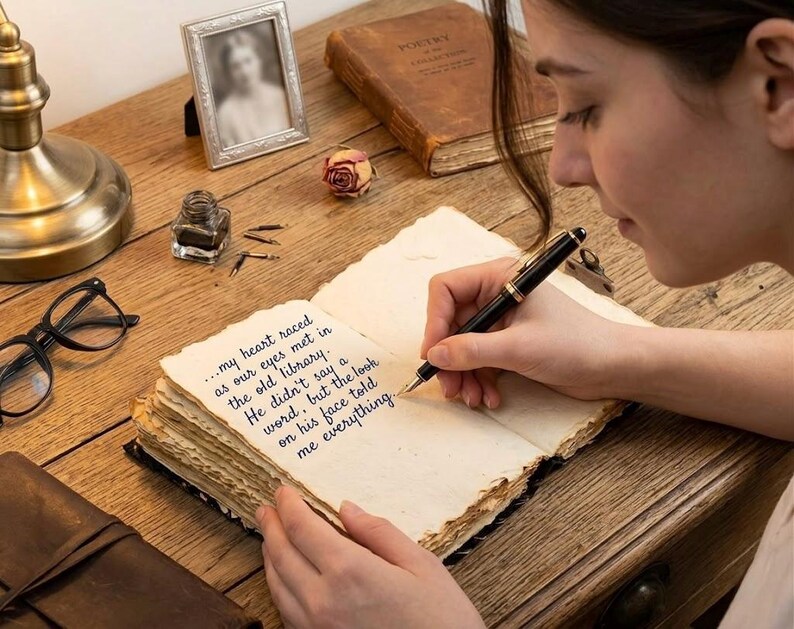 POETRY
of the
COLLECTION
...my heart raced
as our eyes met in
the old library.
He didn't say a
word, but the look
on his face told
me everything.